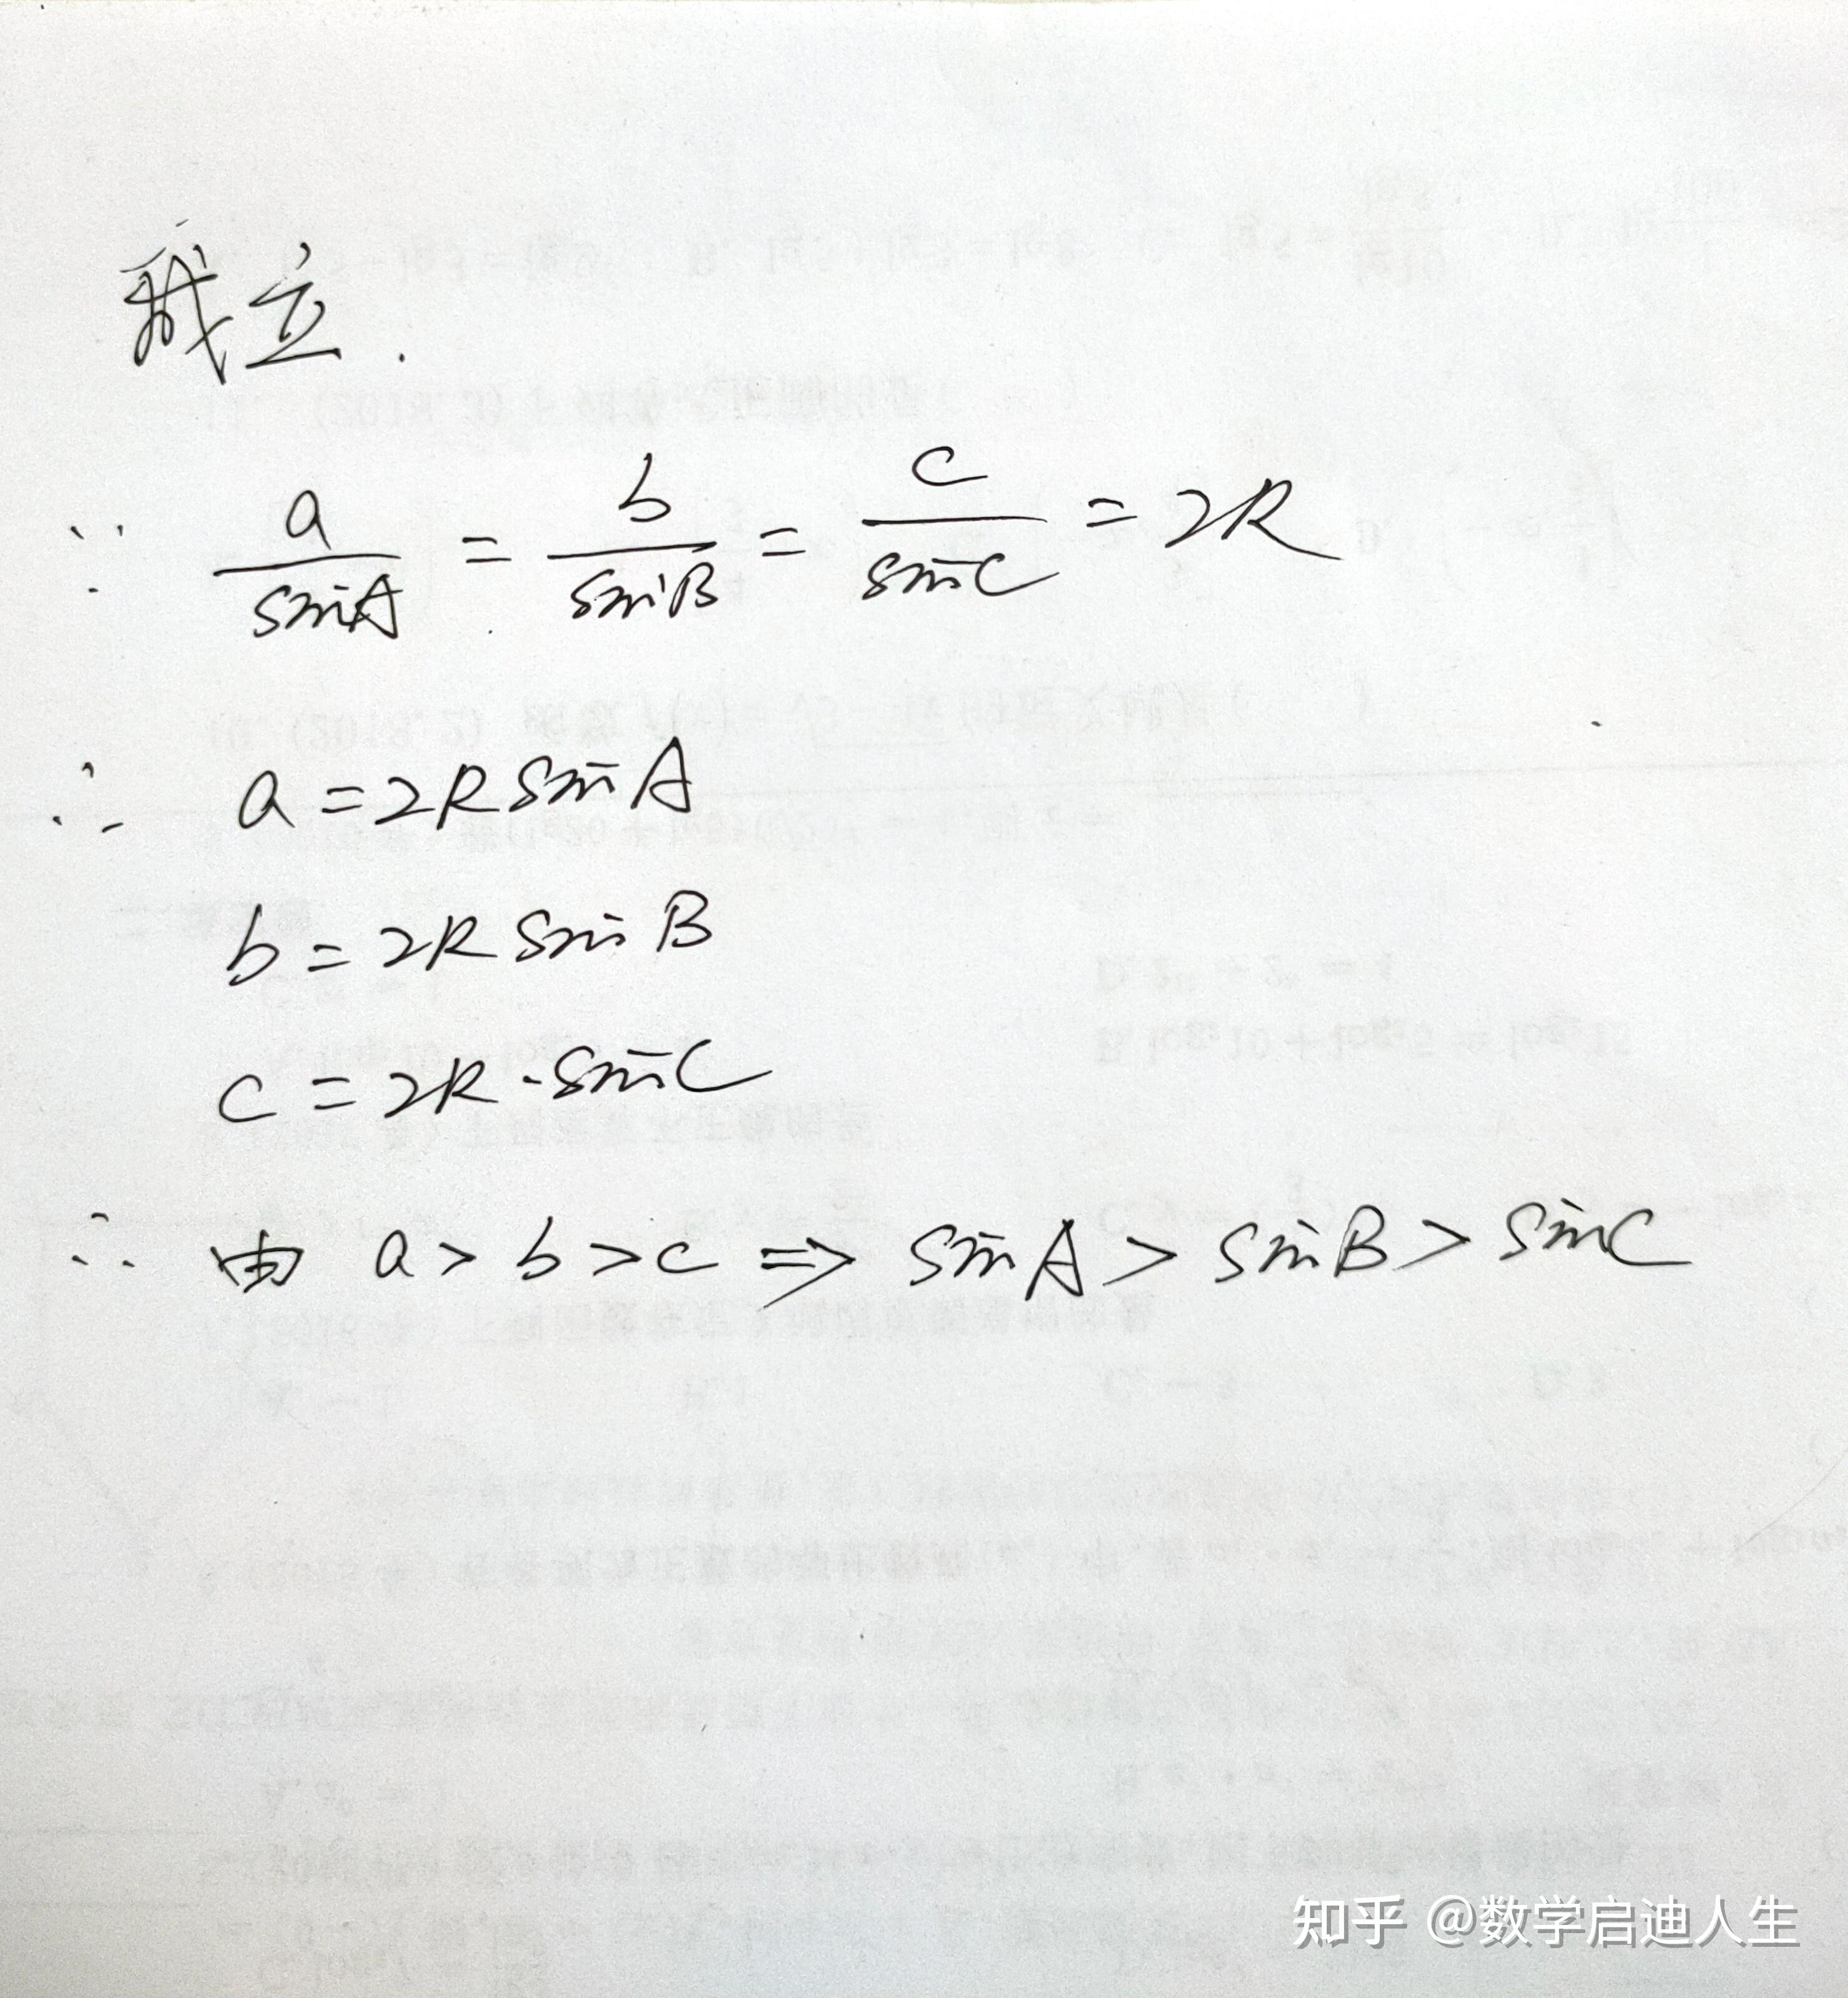 成立.
∵ a/sinA = b/sinB = c/sinC = 2R
∴ a = 2R sin A
b = 2R sin B
c = 2R · sinC
∴ 由 a > b > c ⇒ sin A > sin B > sin C
知乎 @数学启迪人生